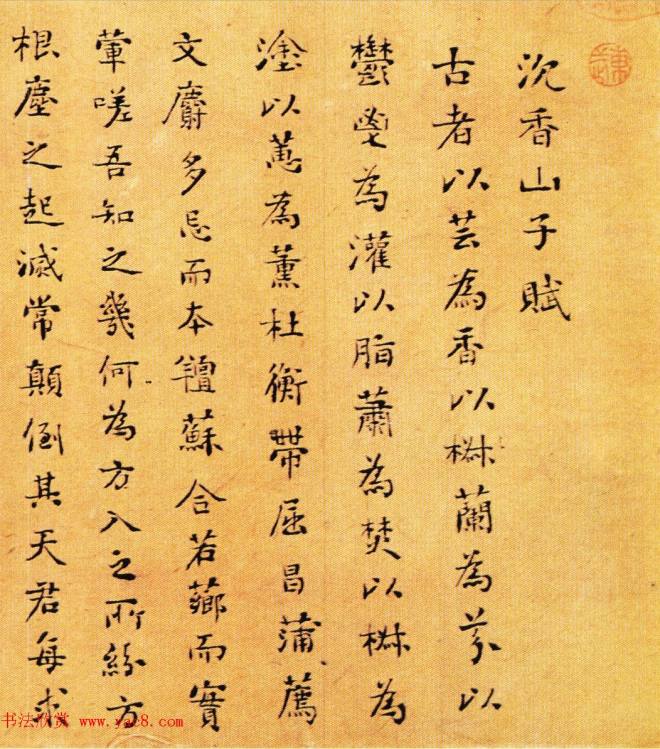 沉香山子賦
古者以芸為香以椒蘭為芬以
鬱鬯為灌以脂蕭為焚以椒為
塗以蕙為薰杜衡帶屈昌蒲薦
文麝多忌而本羶蘇合若薌而實
葷嗟吾知之幾何為方入之所紛方
根塵之起滅常顛倒其天君每求
书法欣赏 www.yac8.com